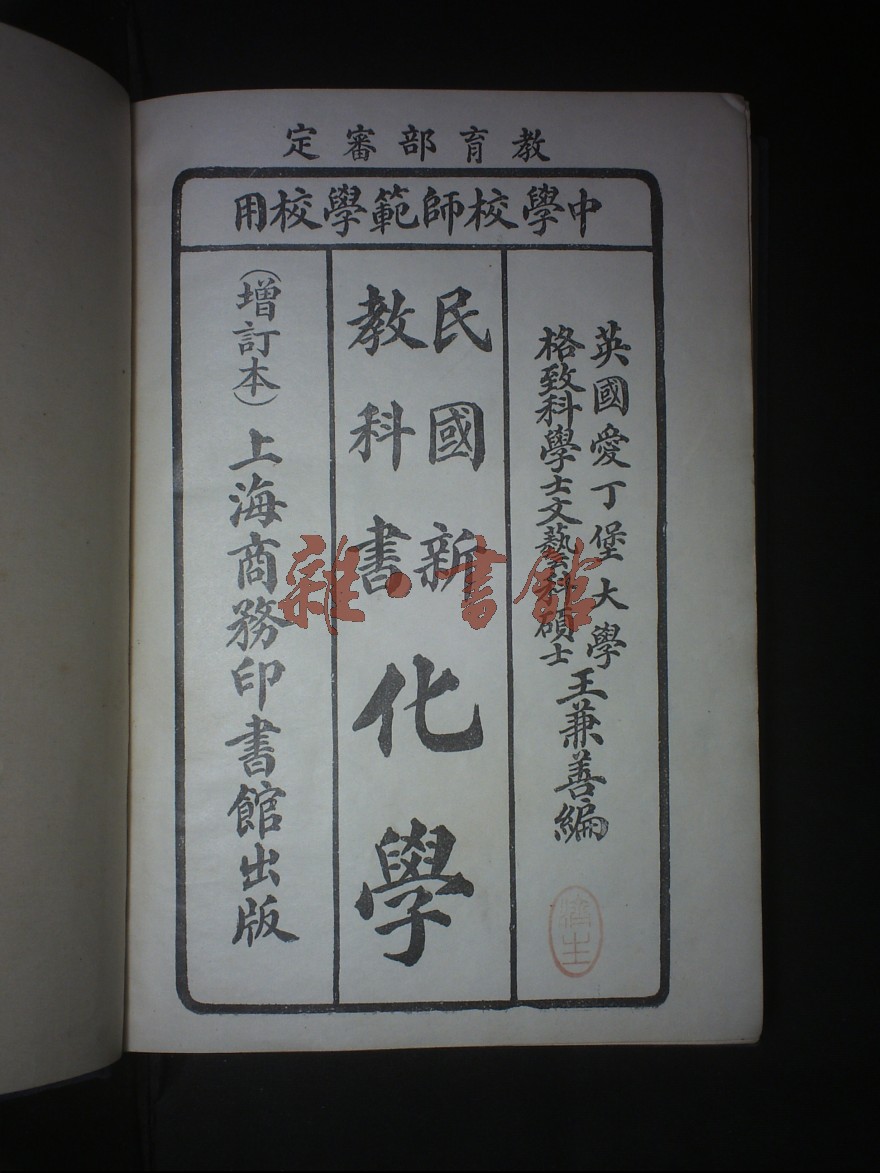 教育部審定
中學校師範學校用
英國愛丁堡大學
格致科學士文藝科碩士
王兼善編
民國新
教科書
化學
（增訂本）
上海商務印書館出版
雜·書館